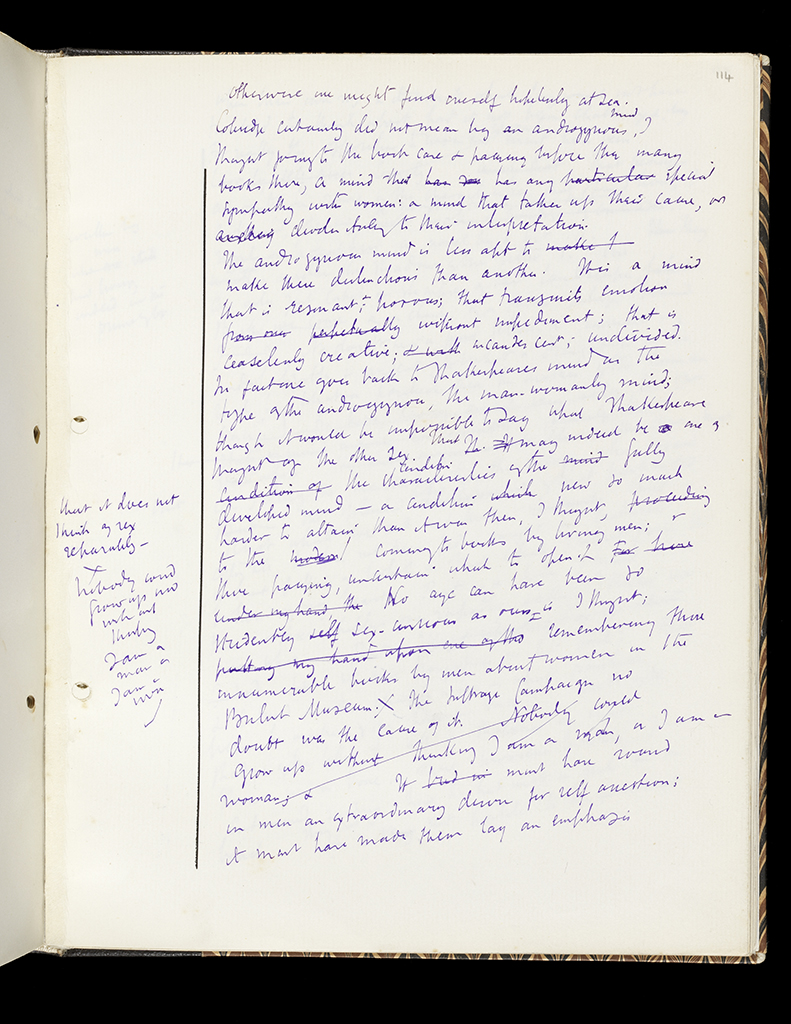 114
otherwise one might find oneself hopelessly at sea.
Coleridge certainly did not mean by an androgynous mind, I
thought going to the book case & pausing before the many
books there, a mind that has any particular special
sympathy with women: a mind that takes up their cause, or
devotes itself to their interpretation.
The androgynous mind is less apt to make t
make these distinctions than another. It is a mind
that is resonant & porous; that transmits emotion
from one perpetually without impediment; that is
ceaselessly creative; & with incandescent; undivided.
In fact one goes back to Shakespeares mind as the
type of the androgynous, the man-womanly mind;
though it would be impossible to say what Shakespeare
thought of the other sex. That it may indeed be one of
condition of the characteristics of the mind fully
developed mind — a condition which now so much
harder to attain than it was then, I thought, proceeding
to the modern coming to books by living men; &
there pausing, uncertain what to open. For have
under my hand the No age can have been so
stridently self sex-conscious as ours is I thought;
putting my hand upon one of the remembering those
innumerable books by men about women in the
British Museum; X The Suffrage Campaign no
doubt was the cause of it. Nobody could
grow up without thinking I am a man, or I am a
woman; & It bred in must have roused
in men an extraordinary desire for self assertion;
it must have made them lay an emphasis
that it does not
think of sex
separately —
X
Nobody could
grow up now
without
thinking
I am a
man or
I am a